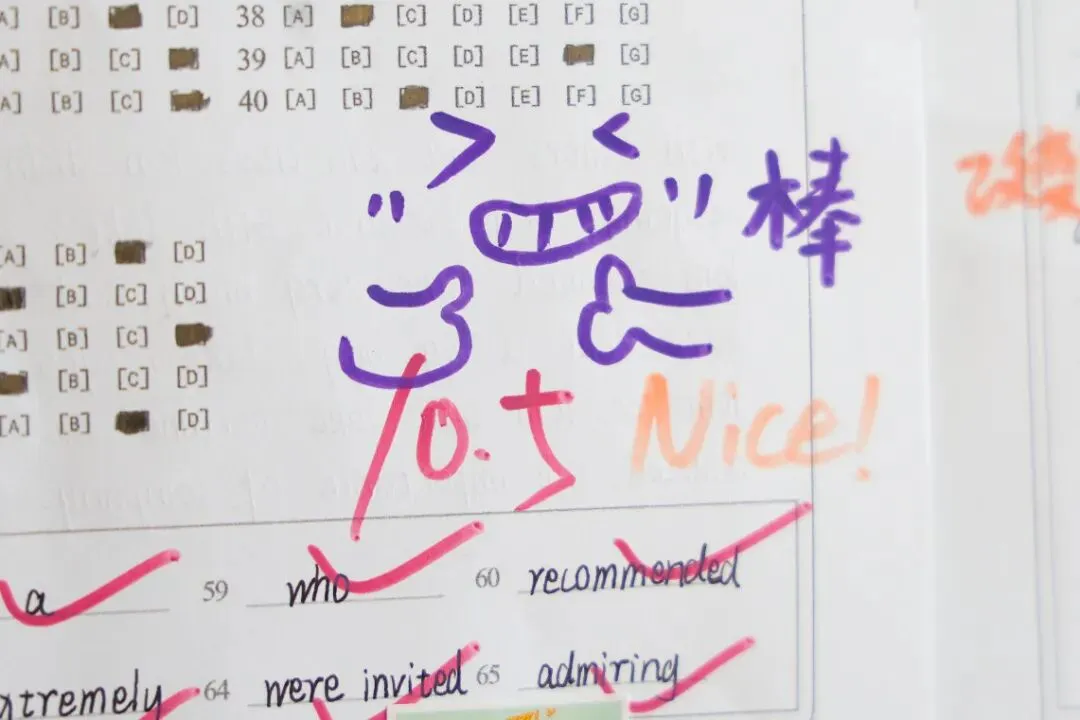 [A] [B] [D] 38 [A] [C] [D] [E] [F] [G]
[A] [B] [C] 39 [A] [B] [C] [D] [E] [G]
[A] [B] [C] 40 [A] [B] [D] [E] [F] [G]
棒
[A] [B] [D]
[B] [C] [D]
[A] [B] [C]
[B] [C] [D]
[A] [B] [D]
10.5
Nice!
a 59 who 60 recommended
xtremely 64 were invited 65 admiring